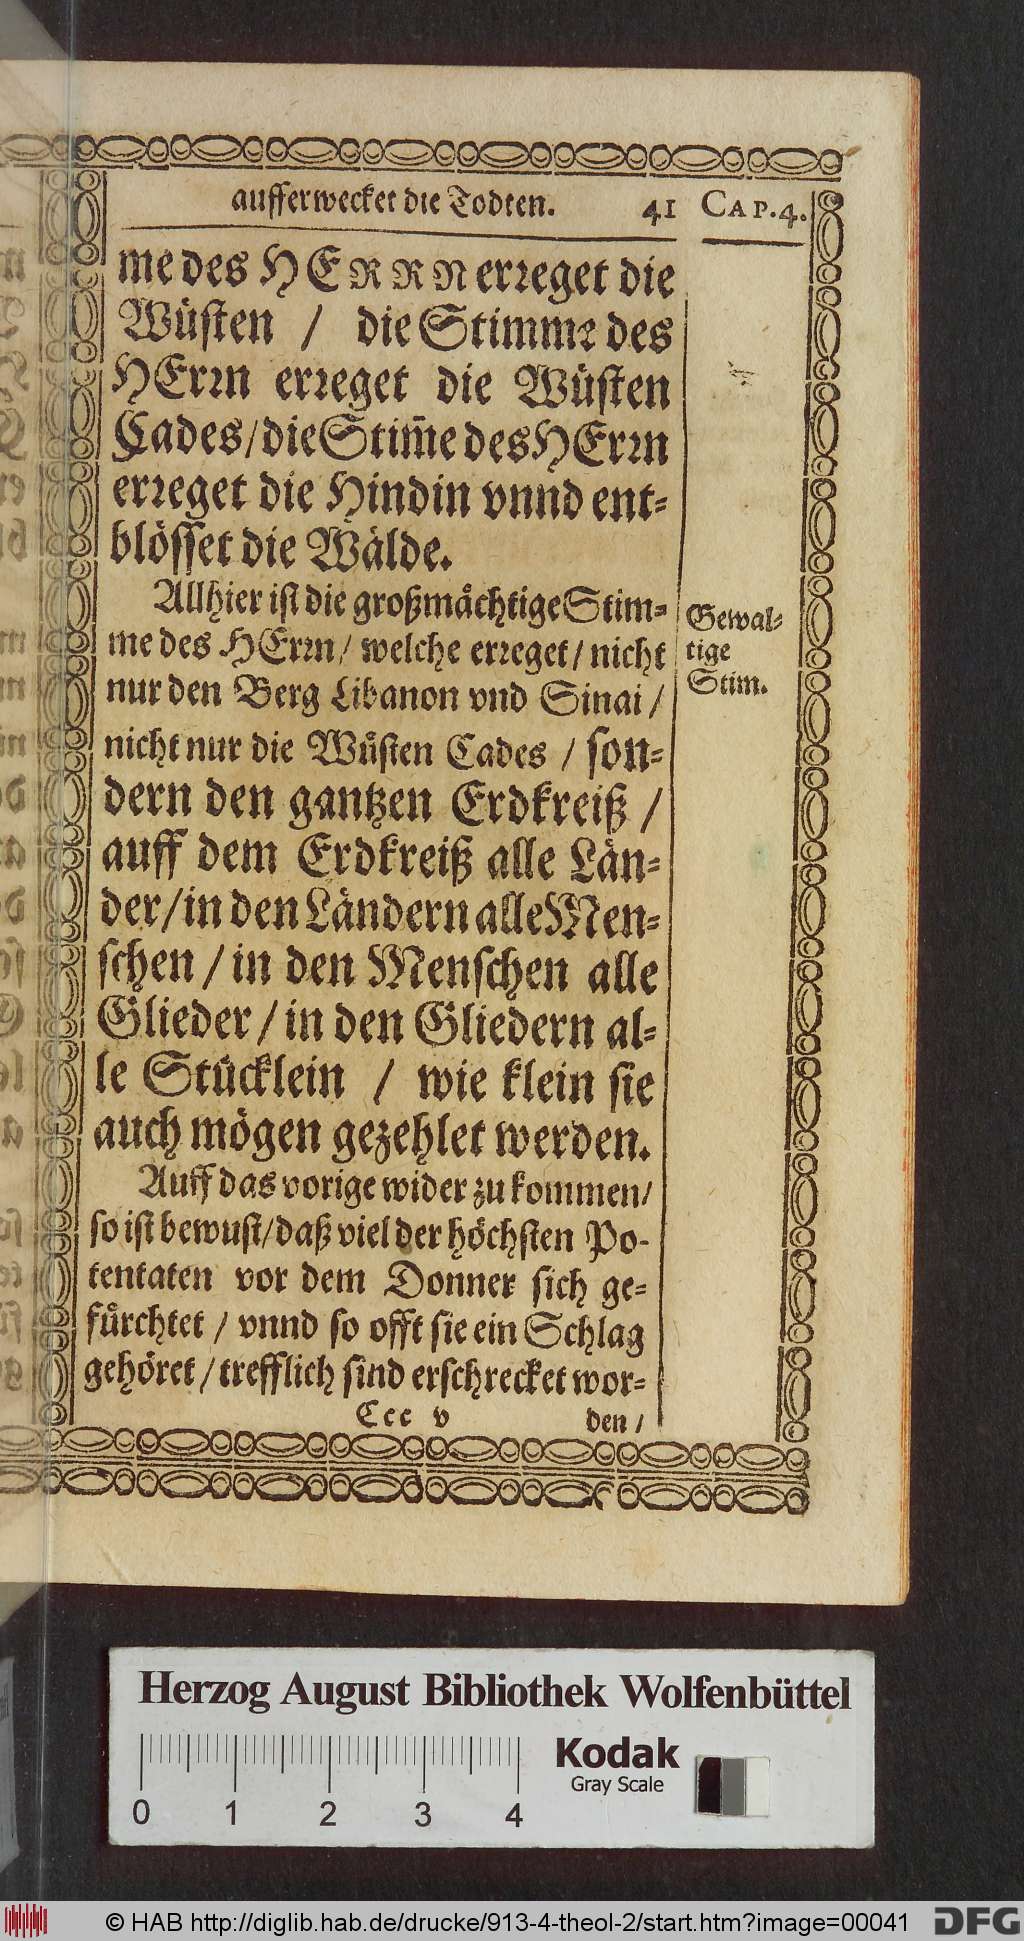 aufferwecket die Todten. 41 CAP.4.
me des HERRN erreget die
Wüsten / die Stimme des
HErrn erreget die Wüsten
Cades/die Stim̄e des HErrn
erreget die Hindin vnnd ent-
blösset die Wälde.
Allhier ist die großmächtige Stim-
me des HErrn/ welche erreget/ nicht
nur den Berg Libanon vnd Sinai/
nicht nur die Wüsten Cades / son-
dern den gantzen Erdkreiß /
auff dem Erdkreiß alle Län-
der/in den Ländern alle Men-
schen/in den Menschen alle
Glieder/in den Gliedern al-
le Stücklein / wie klein sie
auch mögen gezehlet werden.
Auff das vorige wider zu kommen/
so ist bewust/daß viel der höchsten Po-
tentaten vor dem Donner sich ge-
fürchtet / vnnd so offt sie ein Schlag
gehöret/trefflich sind erschrecket wor-
Ccc v den/
Gewal-
tige
Stim.
Herzog August Bibliothek Wolfenbüttel
Kodak
Gray Scale
0 1 2 3 4
© HAB http://diglib.hab.de/drucke/913-4-theol-2/start.htm?image=00041
DFG